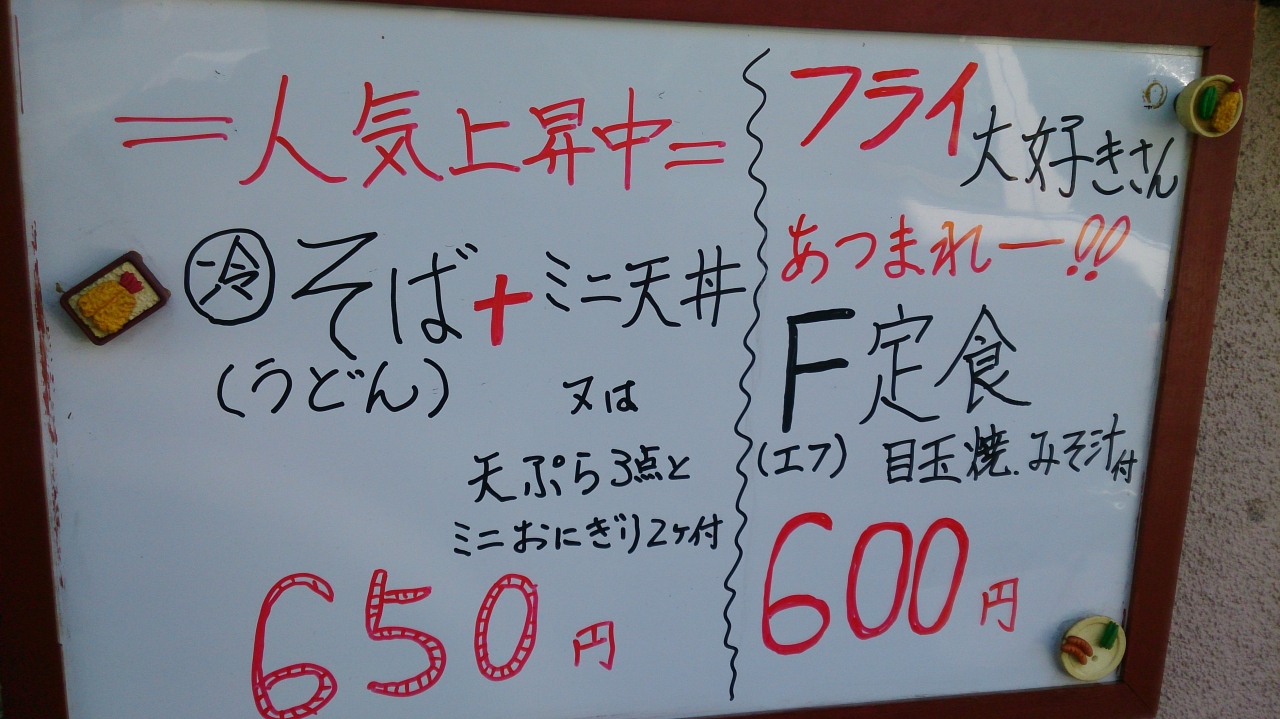 =人気上昇中=
冷そば+ミニ天丼
(うどん) 又は
天ぷら3点と
ミニおにぎり2ヶ付
650円
フライ
大好きさん
あつまれー!!
F定食
(エフ) 目玉焼.みそ汁付
600円